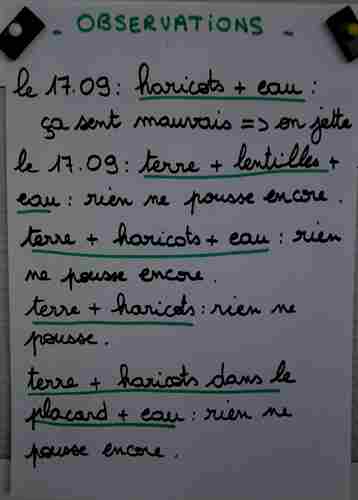 - OBSERVATIONS -
le 17.09 : haricots + eau :
ça sent mauvais => on jette
le 17.09 : terre + lentilles +
eau : rien ne pousse encore.
terre + haricots + eau : rien
ne pousse encore.
terre + haricots : rien ne
pousse.
terre + haricots dans le
placard + eau : rien ne
pousse encore.